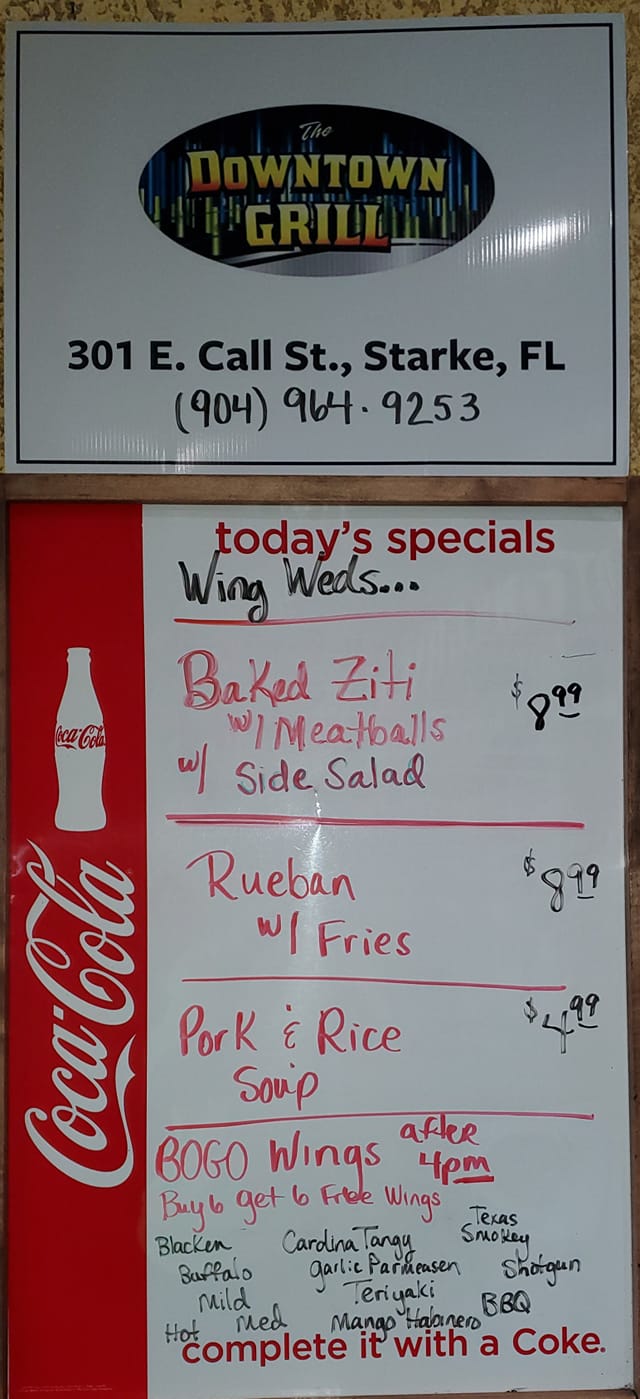 The
DOWNTOWN
GRILL
301 E. Call St., Starke, FL
(904) 964.9253
today's specials
Wing Weds...
Baked Ziti
w/ Meatballs
w/ Side Salad
$8.99
Rueban
w/ Fries
$8.99
Pork & Rice
Soup
$4.99
BOGO Wings after
4pm
Buy 6 get 6 Free Wings
Blacken
Buffalo
Mild
Hot Med
Carolina Tangy
Garlic Parmeasen
Teriyaki
Mango Habinero
Texas
Smokey
Shotgun
BBQ
complete it with a Coke.
Coca-Cola
Coca-Cola